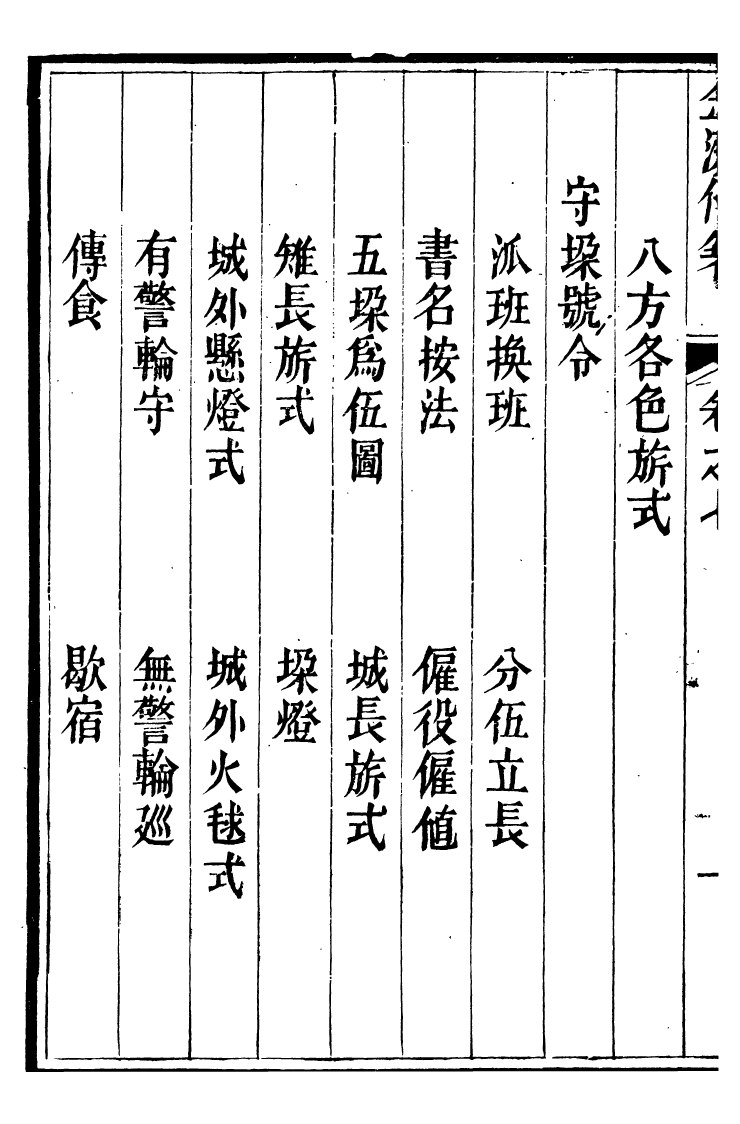 金湯借箸
卷之七
一
八方各色旂式
守垜號令
泒班換班　分伍立長
書名按法　僱役僱値
五垜爲伍圖　城長旂式
雉長旂式　垜燈
城外懸燈式　城外火毬式
有警輪守　無警輪廵
傳食　歇宿